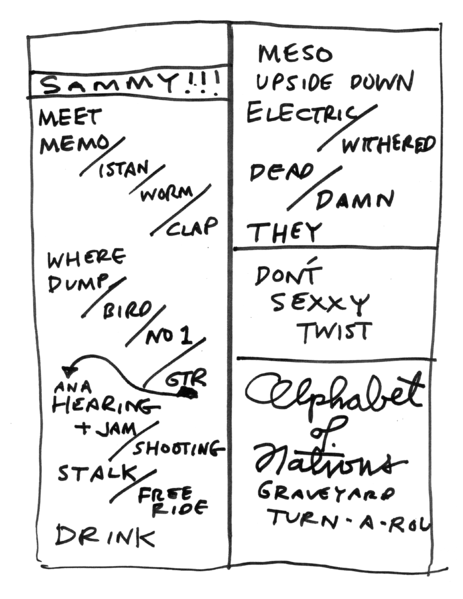 SAMMY!!!
MEET
MEMO
ISTAN
WORM
CLAP
WHERE
DUMP
BIRD
NO 1
GTR
ANA
HEARING
+ JAM
SHOOTING
STALK
FREE
RIDE
DRINK
MESO
UPSIDE DOWN
ELECTRIC
WITHERED
DEAD
DAMN
THEY
DON'T
SEXXY
TWIST
Alphabet
of
Nations
GRAVEYARD
TURN-A-ROU